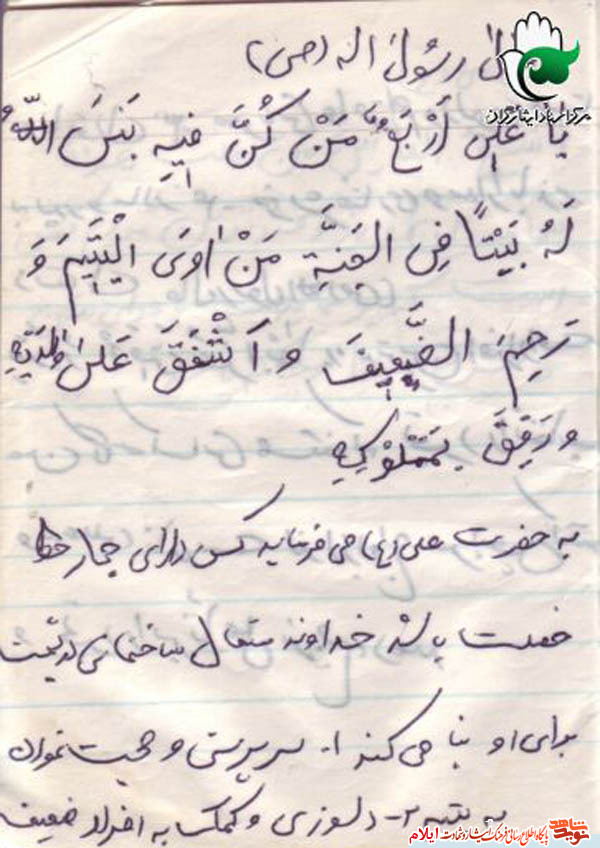 قالَ رسُولُ اله (ص)
مرکز اسناد ایثارگران
یا عَلِی أَرْبَعٌ مَنْ کُنَّ فِیهِ بَنَیَ اللهُ
لَهُ بَیْتًا فِی الجَنَّةِ مَنْ اوَی الْیَتِیمَ وَ
رَحِمَ الضَّعِیفَ و اَشْفَقَ عَلیٰ والِدَیْهِ
و رَفِقَ بِمَمْلُوکِهِ
به حضرت علی (ع) می فرماید کس دارای چهار خط
خصلت باشد خداوند متعال ساختمانی در بهشت
برای او بنا می کند ۱- سرپرستی و محبت
یتیم ۲- دلسوزی و کمک به افراد ضعیف
نوید شاهد
پایگاه اطلاع رسانی فرهنگ ایثار و شهادت ایلام